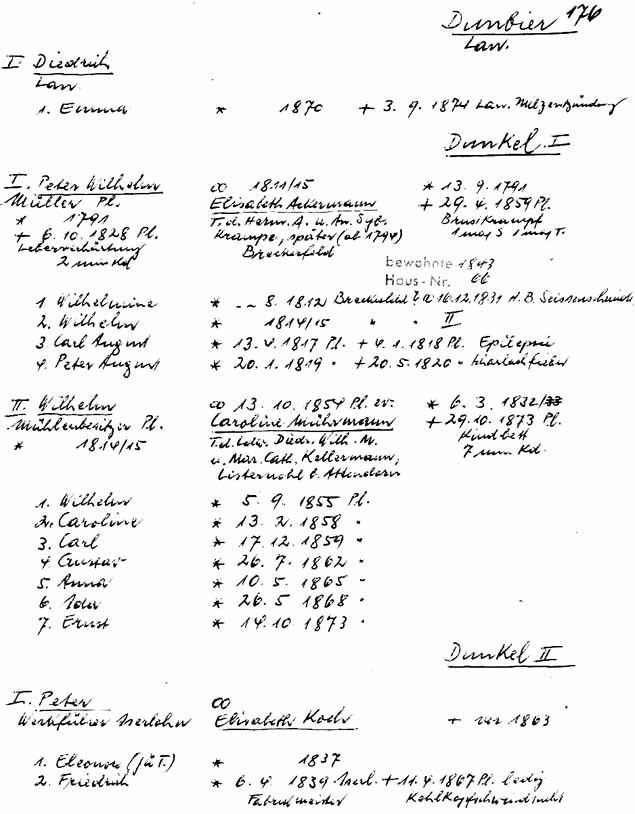 Dunbier 176
Law.
I. Diedrich
Law.
1. Emma * 1870 + 3. 9. 1874 Law. Milzentzündung
Dunkel I
I. Peter Wilhelm ∞ 1811/15 * 13. 9. 1791
Müller Pl. Elisabeth Ackermann + 29. 4. 1859 Pl.
* 1791 T. d. Herm. A. u. An. Syb. Brustkrampf
+ 6. 10. 1828 Pl. Krampe, später (ab 1794) 1 maj S 1 maj T.
Leberverhärtung Breckerfeld
2 min Kd
bewohnte 1843
Haus-Nr. 66
1. Wilhelmine * - ~ 8. 1812 Breckerfeld 16.12.1831 H. B.
2. Wilhelm * 1814/15 " " II
3 Carl August * 13. 4. 1817 Pl. + 4. 1. 1818 Pl. Epilepsie
4. Peter August * 20. 1. 1819 " + 20. 5. 1820 " Scharlachfieber
II. Wilhelm ∞ 13. 10. 1854 Pl. ev. * 6. 3. 1832/33
Mühlenbesitzer Pl. Caroline Mührmann + 29. 10. 1873 Pl.
* 1814/15 T. d. Diedr. Wilh. M. Kindbett
u. Mar. Cath. Kellermann, 7 min. Kd.
Listernohl b. Attendorn
1. Wilhelm * 5. 9. 1855 Pl.
2. Caroline * 13. 2. 1858 "
3. Carl * 17. 12. 1859 "
4. Gustav * 26. 7. 1862 "
5. Anna * 10. 5. 1865 "
6. Ida * 26. 5 1868 "
7. Ernst * 14. 10 1873 "
Dunkel II
I. Peter ∞
Werkführer Iserlohn Elisabeth Koch + vor 1863
1. Eleonore (jü T.) * 1837
2. Friedrich * 6. 4. 1839 Iserl. + 11. 4. 1867 Pl. ledig
Fabrikmeister Kehlkopfschwindsucht